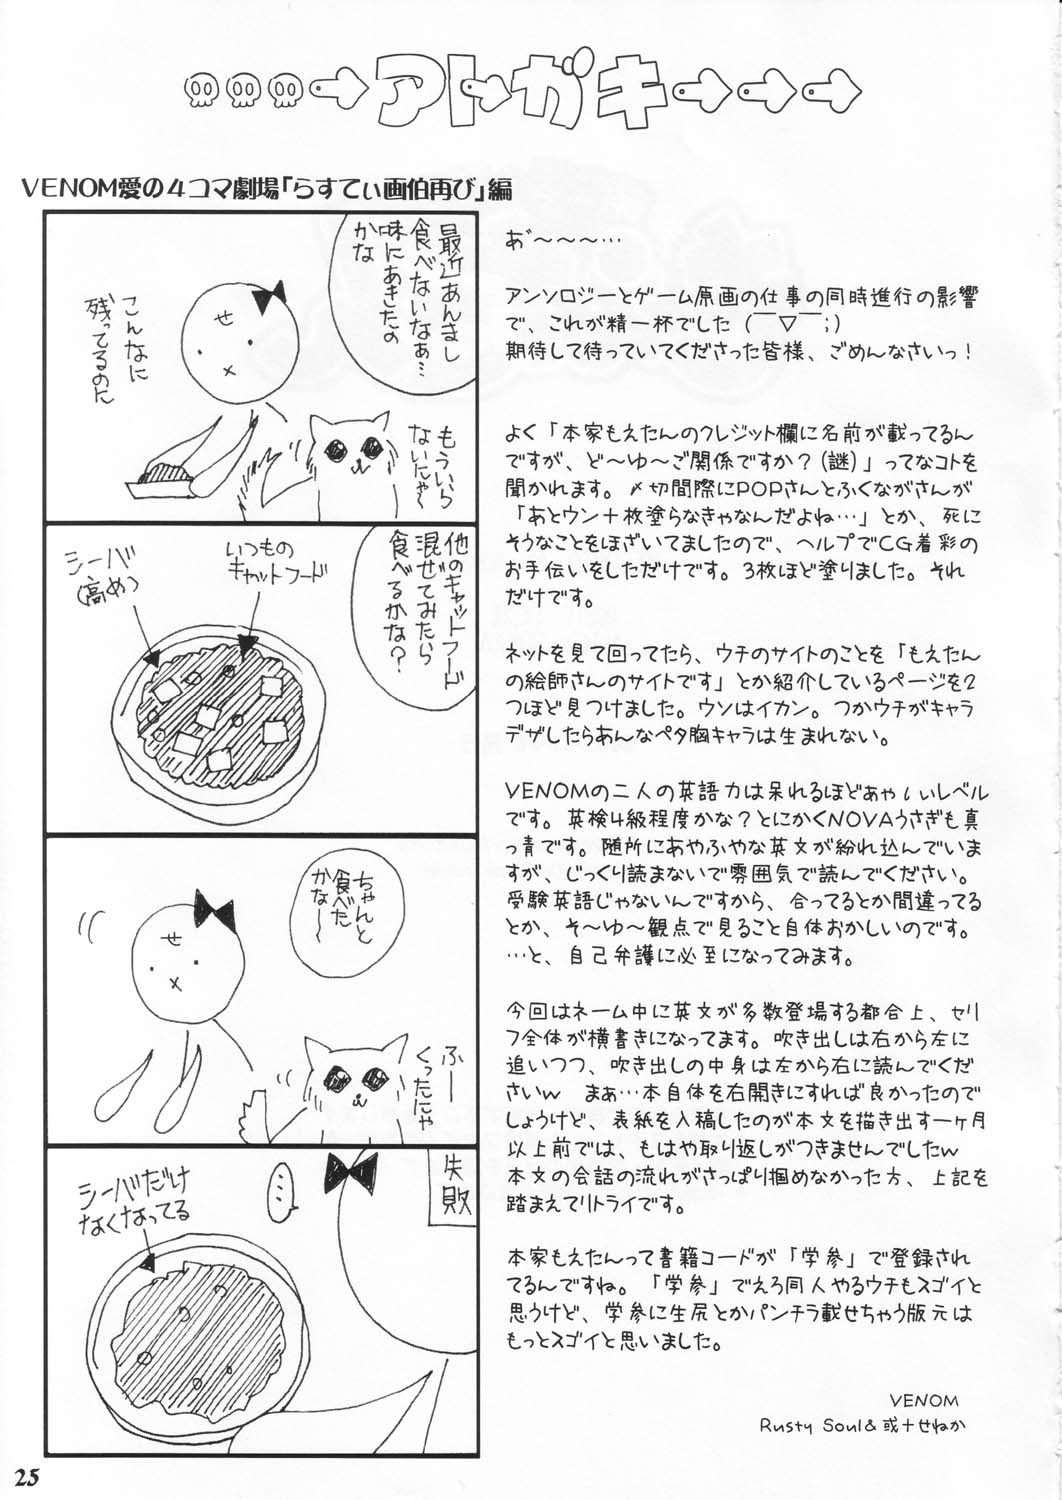 アトガキ
VENOM愛の4コマ劇場「らすてぃ画伯再び」編
最近あんまし
食べないなぁ…
味にあきたの
かな
こんなに
残ってるのに
せ
もういら
ないにゃ〜
他のキャットフード
混ぜてみたら
食べるかな?
いつもの
キャットフード
シーバ
(高め)
ちゃんと
食べた
かな〜
せ
ふー
くったにゃ
失敗
…
シーバだけ
なくなってる
あ゛〜〜〜…
アンソロジーとゲーム原画の仕事の同時進行の影響
で、これが精一杯でした(￣▽￣;)
期待して待っていてくださった皆様、ごめんなさいっ!
よく「本家もえたんのクレジット欄に名前が載ってるん
ですが、ど〜ゆ〜ご関係ですか?(謎)」ってなコトを
聞かれます。〆切間際にPOPさんとふくながさんが
「あとウン十枚塗らなきゃなんだよね…」とか、死に
そうなことをほざいてましたので、ヘルプでCG着彩の
お手伝いをしただけです。3枚ほど塗りました。それ
だけです。
ネットを見て回ってたら、ウチのサイトのことを「もえたん
の絵師さんのサイトです」とか紹介しているページを2
つほど見つけました。ウソはイカン。つかウチがキャラ
デザしたらあんなペタ胸キャラは生まれない。
VENOMの二人の英語力は呆れるほどあゃしぃレベル
です。英検4級程度かな?とにかくNOVAうさぎも真
っ青です。随所にあやふやな英文が紛れ込んでいま
すが、じっくり読まないで雰囲気で読んでください。
受験英語じゃないんですから、合ってるとか間違ってる
とか、そ〜ゆ〜観点で見ること自体おかしいのです。
…と、自己弁護に必至になってみます。
今回はネーム中に英文が多数登場する都合上、セリ
フ全体が横書きになってます。吹き出しは右から左に
追いつつ、吹き出しの中身は左から右に読んでくだ
さいw まぁ…本自体を右開きにすれば良かったので
しょうけど、表紙を入稿したのが本文を描き出す一ヶ月
以上前では、もはや取り返しがつきませんでしたw
本文の会話の流れがさっぱり掴めなかった方、上記を
踏まえてリトライです。
本家もえたんって書籍コードが「学参」で登録され
てるんですね。「学参」でえろ同人やるウチもスゴイと
思うけど、学参に生尻とかパンチラ載せちゃう版元は
もっとスゴイと思いました。
VENOM
Rusty Soul&或十せねか
25